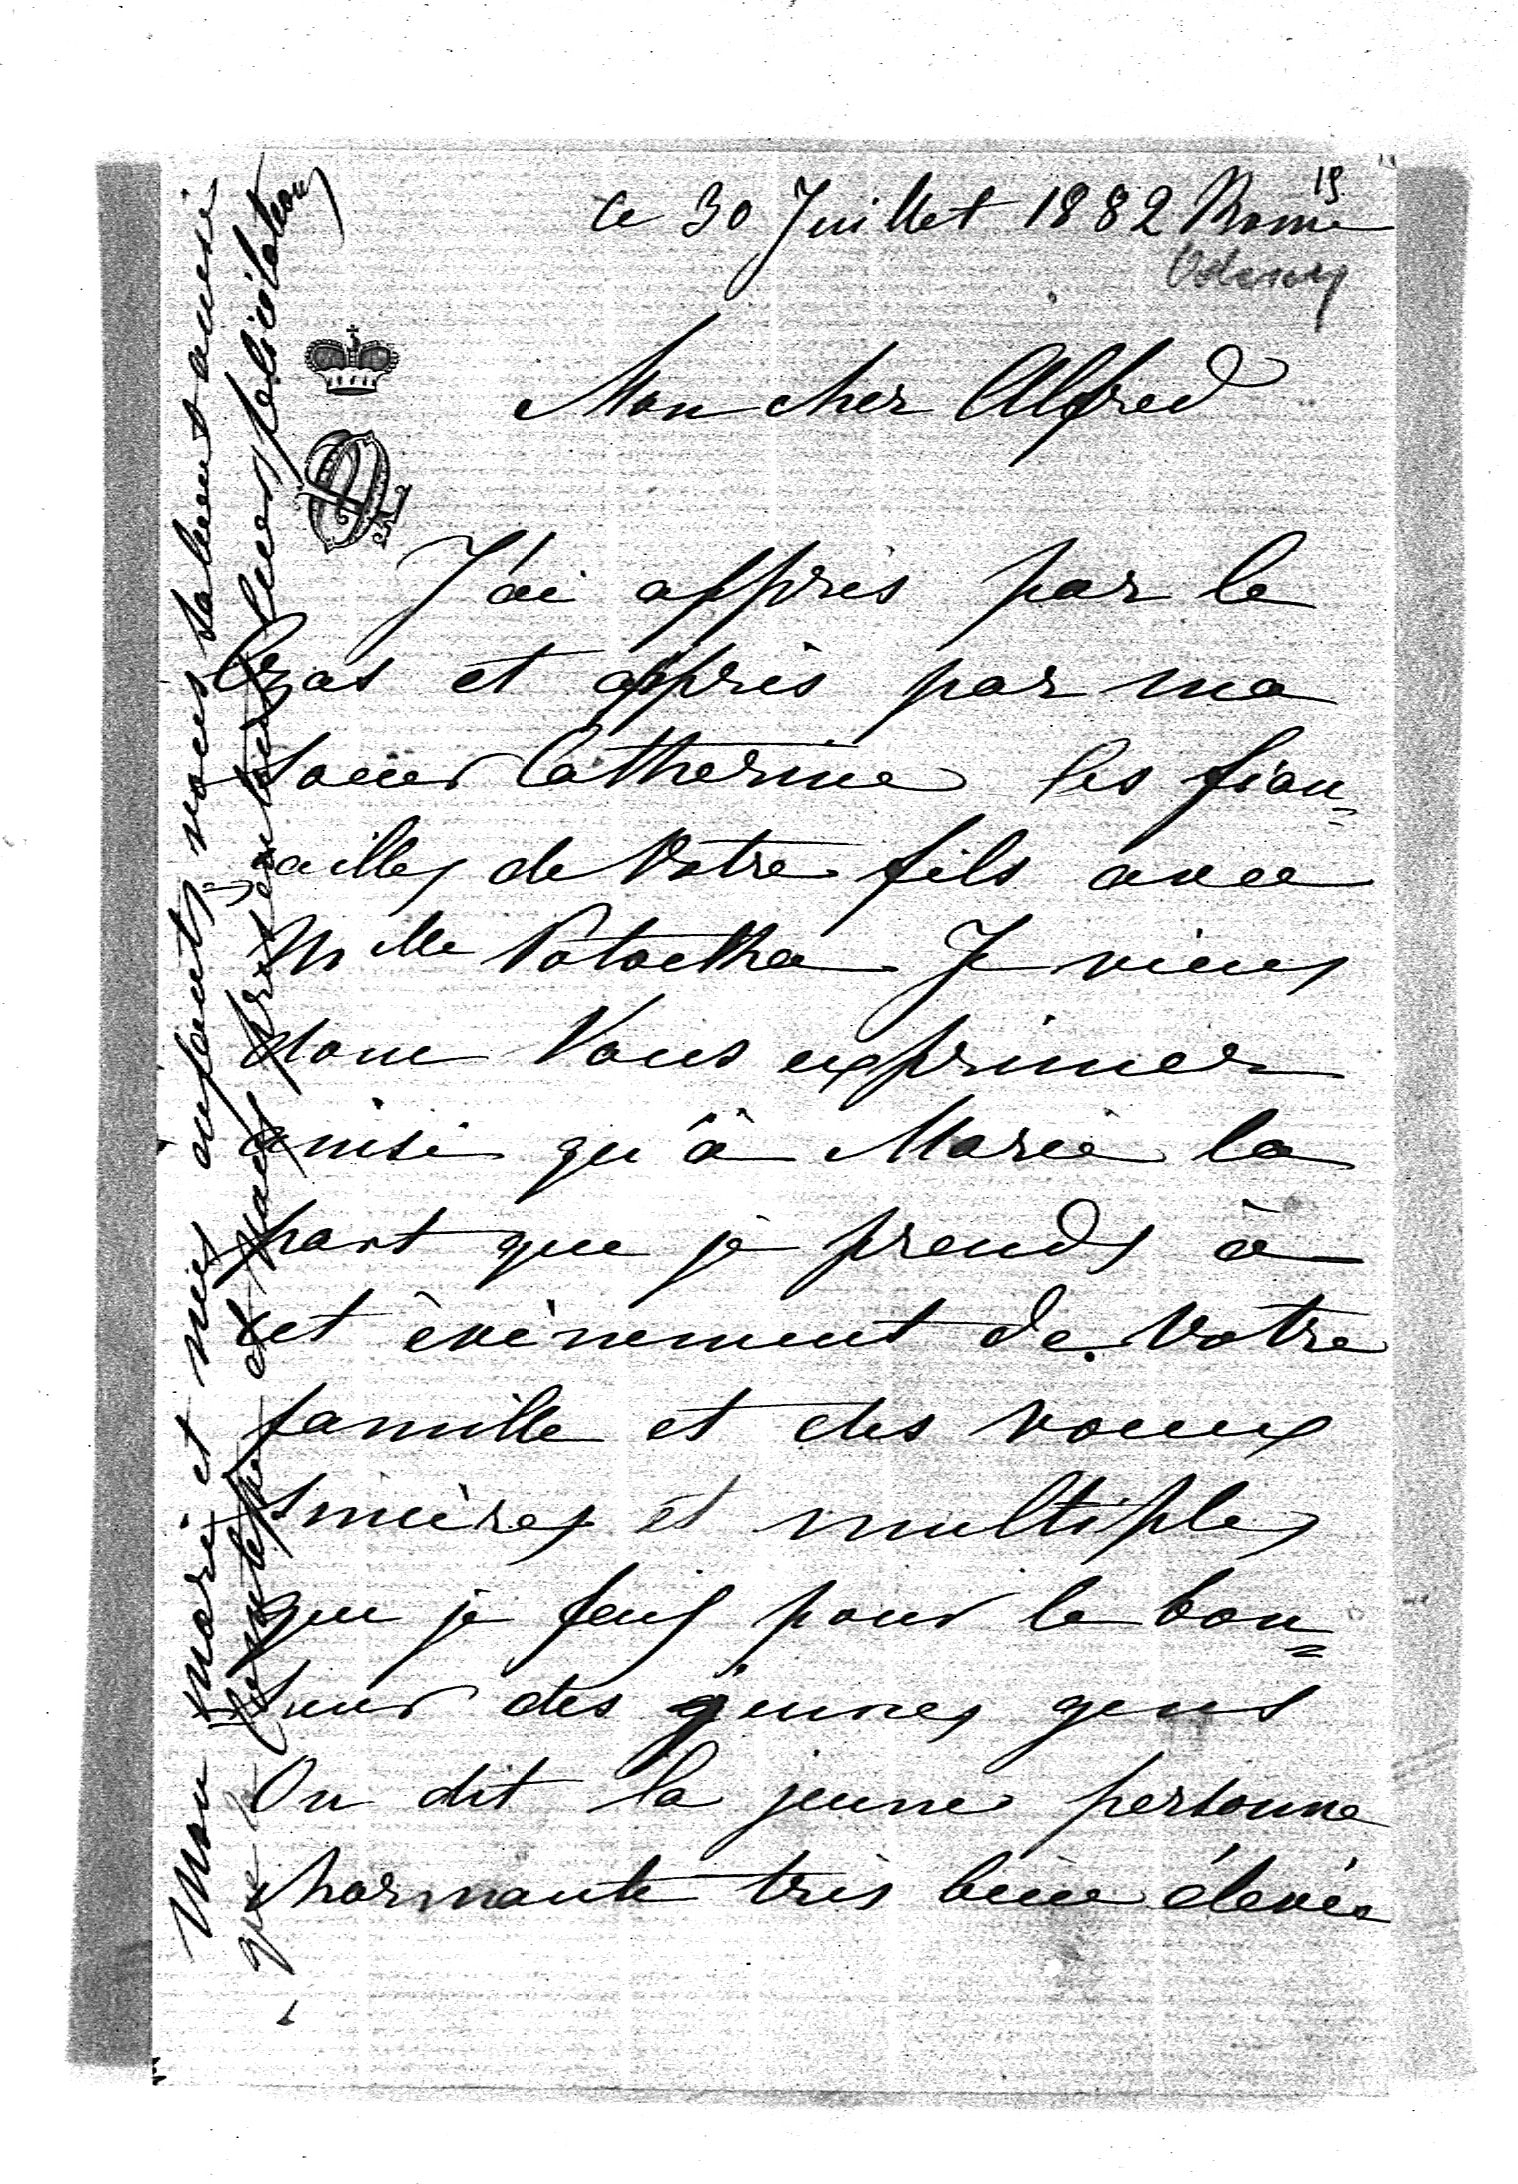 ce 30 Juillet 1882 Rome
19
Mon cher Alfred
J'ai appris par le
Czas et appris par ma
soeur Catherine les fian=
=cailles de Votre fils avec
Mlle Potocka Je viens
donc Vous exprimer
ainsi qu'à Marie la
part que je prends à
cet évènement de Votre
famille et des voeux
sincères et multiples
que je fais pour le bon=
=heur des jeunes gens
On dit la jeune personne
charmante très bien élevée
Mon mari et mes enfants vous saluent ainsi
que et vous présentent leurs félicitations